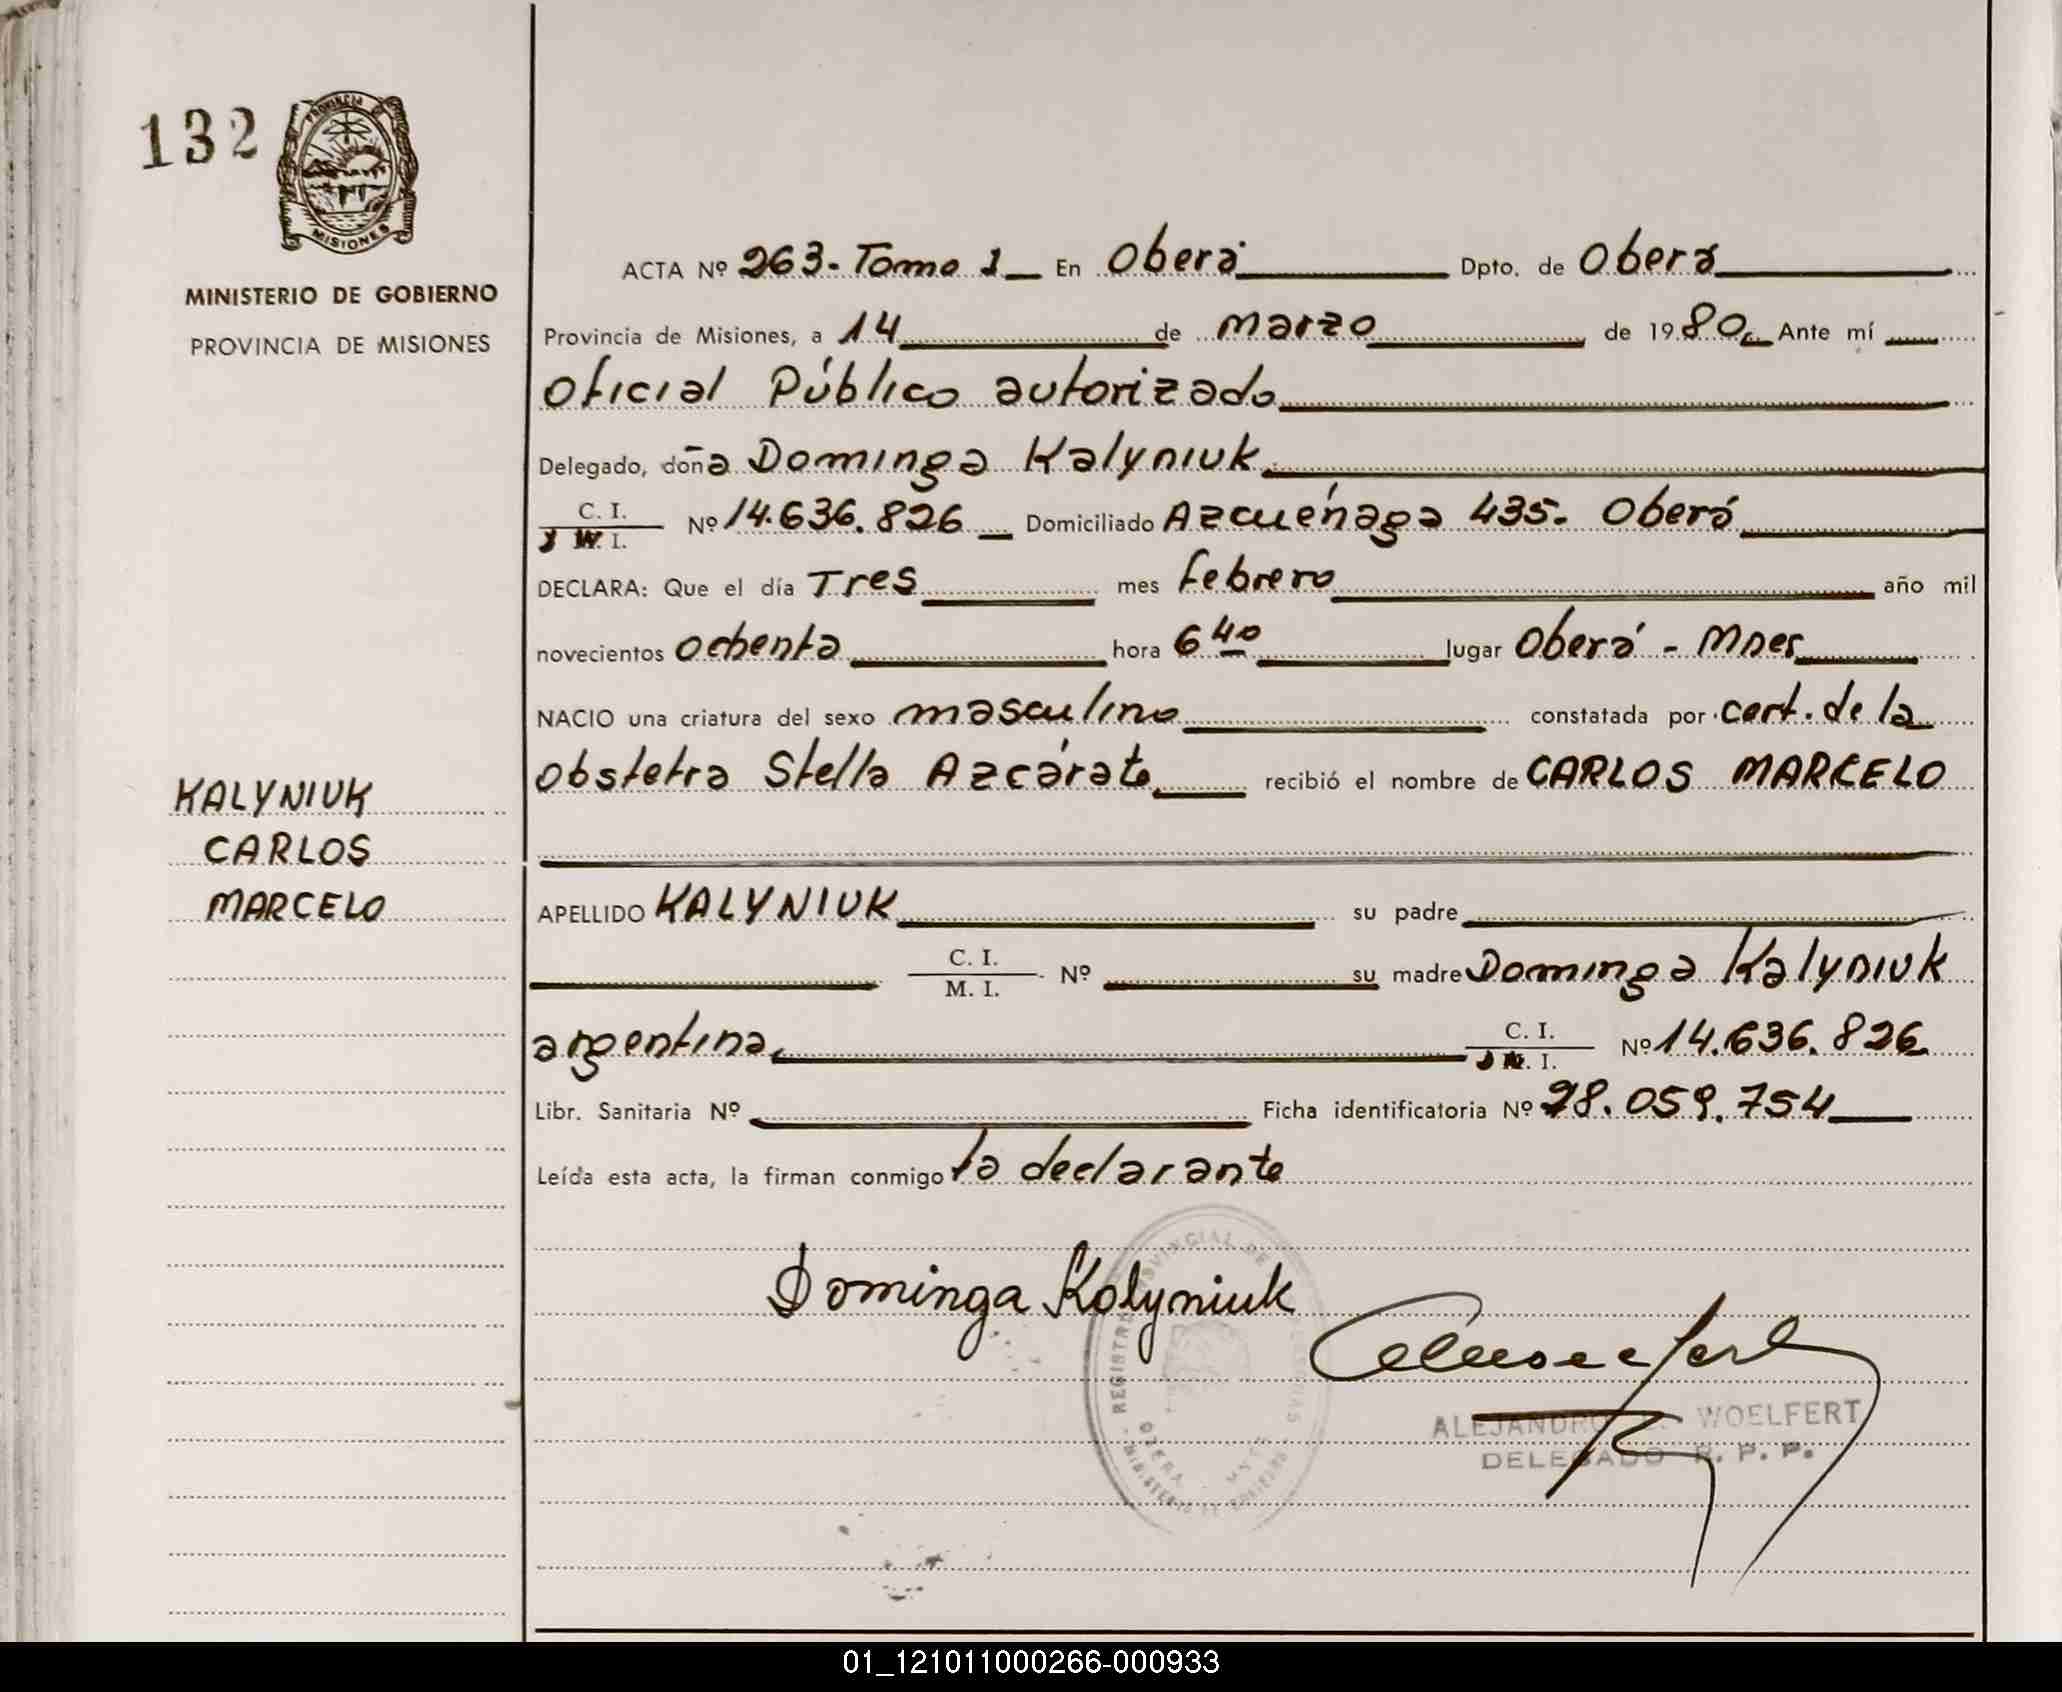 132
PROVINCIA DE
MISIONES
MINISTERIO DE GOBIERNO
PROVINCIA DE MISIONES
KALYNIUK
CARLOS
MARCELO
ACTA Nº 263- Tomo 1 En Oberá Dpto. de Oberá
Provincia de Misiones, a 14 de marzo de 1980 Ante mí
Oficial Público autorizado
Delegado, doña Dominga Kalyniuk
C. I.
M. I. Nº 14.636.826 Domiciliado Azcuénaga 435. Oberá
DECLARA: Que el día Tres mes febrero año mil
novecientos ochenta hora 6 40 lugar Oberá - Mnes
NACIO una criatura del sexo masculino constatada por cert. de la
obstetra Stella Azcárate recibió el nombre de CARLOS MARCELO
APELLIDO KALYNIUK su padre
C. I.
M. I. Nº su madre Dominga Kalyniuk
argentina, C. I.
M. I. Nº 14.636.826
Libr. Sanitaria Nº Ficha identificatoria Nº 28.059.754
Leída esta acta, la firman conmigo la declarante
Dominga Kalyniuk
REGISTRO PROVINCIAL DE LAS PERSONAS
OBERA MNES
MINISTERIO DE GOBIERNO
ALEJANDRO WOELFERT
DELEGADO R. P. P.
01_121011000266-000933